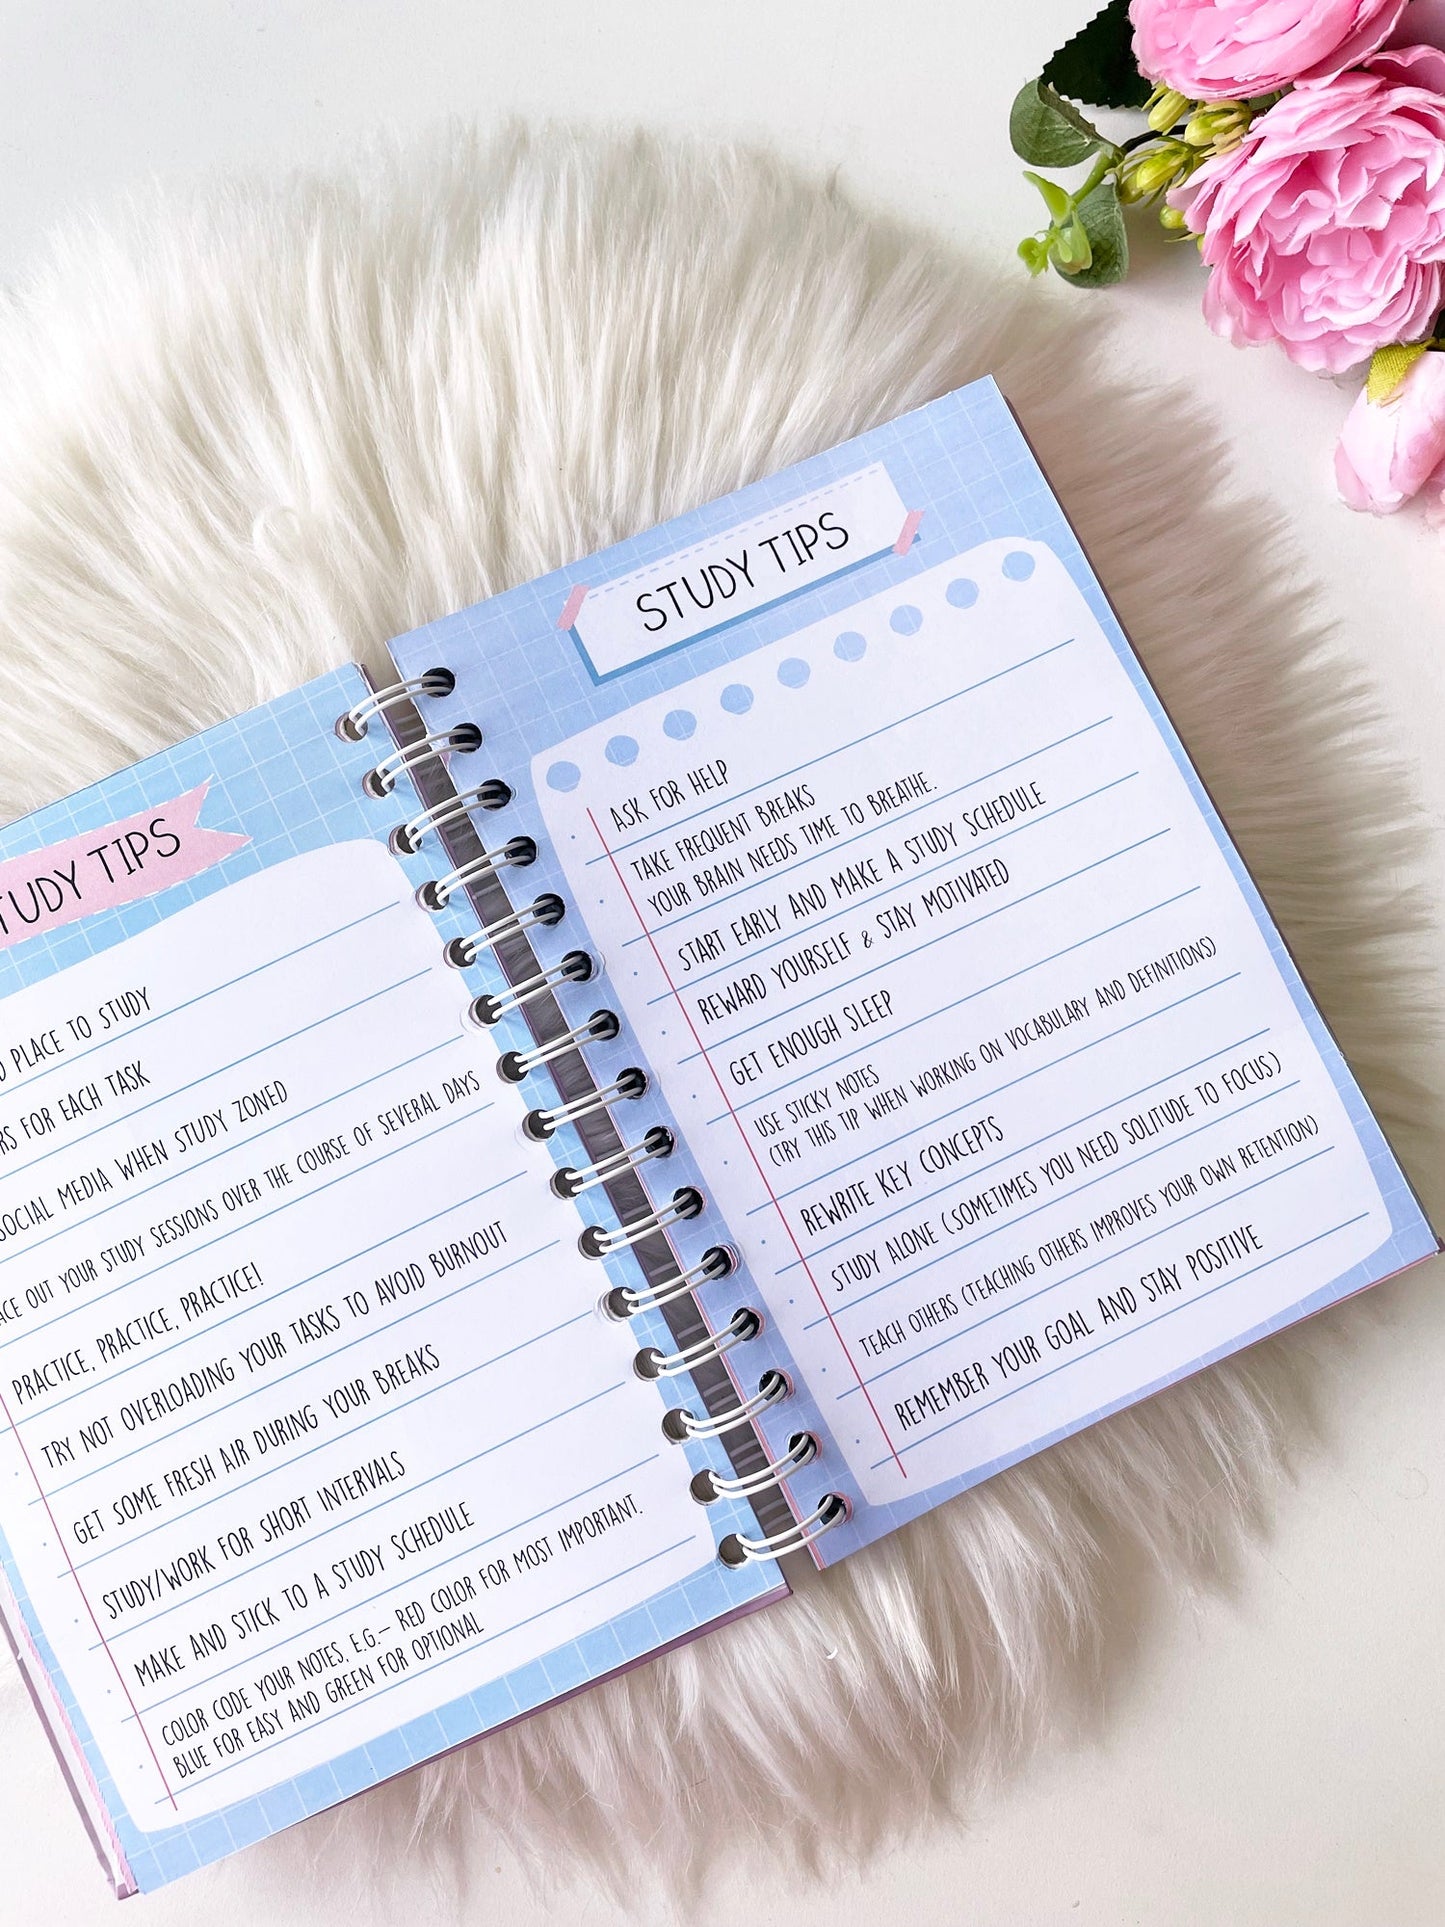 STUDY TIPS
PLACE TO STUDY
FOR EACH TASK
SOCIAL MEDIA WHEN STUDY ZONED
OUT YOUR STUDY SESSIONS OVER THE COURSE OF SEVERAL DAYS
PRACTICE, PRACTICE, PRACTICE!
TRY NOT OVERLOADING YOUR TASKS TO AVOID BURNOUT
GET SOME FRESH AIR DURING YOUR BREAKS
STUDY/WORK FOR SHORT INTERVALS
MAKE AND STICK TO A STUDY SCHEDULE
COLOR CODE YOUR NOTES, E.G.- RED COLOR FOR MOST IMPORTANT.
BLUE FOR EASY AND GREEN FOR OPTIONAL
STUDY TIPS
ASK FOR HELP
TAKE FREQUENT BREAKS
YOUR BRAIN NEEDS TIME TO BREATHE.
START EARLY AND MAKE A STUDY SCHEDULE
REWARD YOURSELF & STAY MOTIVATED
GET ENOUGH SLEEP
USE STICKY NOTES
(TRY THIS TIP WHEN WORKING ON VOCABULARY AND DEFINITIONS)
REWRITE KEY CONCEPTS
STUDY ALONE (SOMETIMES YOU NEED SOLITUDE TO FOCUS)
TEACH OTHERS (TEACHING OTHERS IMPROVES YOUR OWN RETENTION)
REMEMBER YOUR GOAL AND STAY POSITIVE